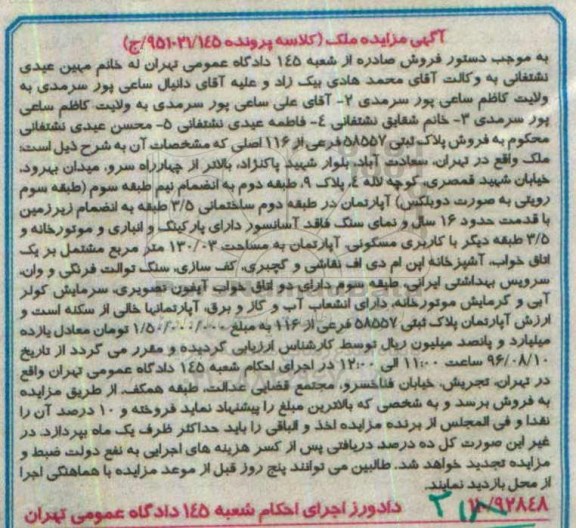 آگهی مزایده ملک (کلاسه پرونده ۹۵۱۰۲۱/۱۴۵/ج)
به موجب دستور فروش صادره از شعبه ۱۴۵ دادگاه عمومی تهران له خانم مهین عیدی
نشتفانی به وکالت آقای محمد هادی بیک زاد و علیه آقای دانیال ساعی پور سرمدی به
ولایت کاظم ساعی پور سرمدی ۲- آقای علی ساعی پور سرمدی به ولایت کاظم ساعی
پور سرمدی ۳- خانم شقایق نشتفانی ٤- فاطمه عیدی نشتفانی ۵- محسن عیدی نشتفانی
محکوم به فروش پلاک ثبتی ۵۸۵۵۷ فرعی از ۱۱۶ اصلی که مشخصات آن به شرح ذیل است:
ملک واقع در تهران، سعادت آباد، بلوار شهید پاکنژاد، بالاتر از چهارراه سرو، میدان بهرود،
خیابان شهید قمصری، کوچه لاله ٤، پلاک ۹، طبقه دوم به انضمام نیم طبقه سوم (طبقه سوم
رویتی به صورت دوبلکس) آپارتمان در طبقه دوم ساختمانی ۳/۵ طبقه به انضمام زیرزمین
با قدمت حدود ۱۶ سال و نمای سنگ فاقد آسانسور دارای پارکینگ و انباری و موتورخانه و
۳/۵ طبقه دیگر با کاربری مسکونی. آپارتمان به مساحت ۱۳۰/۰۳ متر مربع مشتمل بر یک
اتاق خواب، آشپزخانه اپن ام دی اف نقاشی و گچبری، کف سازی، سنگ توالت فرنگی و وان،
سرویس بهداشتی ایرانی، طبقه سوم دارای دو اتاق خواب آیفون تصویری، سرمایش کولر
آبی و گرمایش موتورخانه، دارای انشعاب آب و گاز و برق، آپارتمانها خالی از سکنه است و
ارزش آپارتمان پلاک ثبتی ۵۸۵۵۷ فرعی از ۱۱۶ به مبلغ ۱/۵۰/۰۰۰/۰۰۰ تومان معادل یازده
میلیارد و پانصد میلیون ریال توسط کارشناس ارزیابی گردیده و مقرر می گردد از تاریخ
۹۶/۰۸/۱۰ ساعت ۱۱:۰۰ الی ۱۲:۰۰ در اجرای احکام شعبه ۱۴۵ دادگاه عمومی تهران واقع
در تهران، تجریش، خیابان فناخسرو، مجتمع قضایی عدالت، طبقه همکف، از طریق مزایده
به فروش برسد و به شخصی که بالاترین مبلغ را پیشنهاد نماید فروخته و ۱۰ درصد آن را
نقدا و فی المجلس از برنده مزایده اخذ و الباقی را باید حداکثر ظرف یک ماه بپردازد. در
غیر این صورت کل ده درصد دریافتی پس از کسر هزینه های اجرایی به نفع دولت ضبط و
مزایده تجدید خواهد شد. طالبین می توانند پنج روز قبل از موعد مزایده با هماهنگی اجرا
از محل بازدید نمایند.
دادورز اجرای احکام شعبه ۱۴۵ دادگاه عمومی تهران